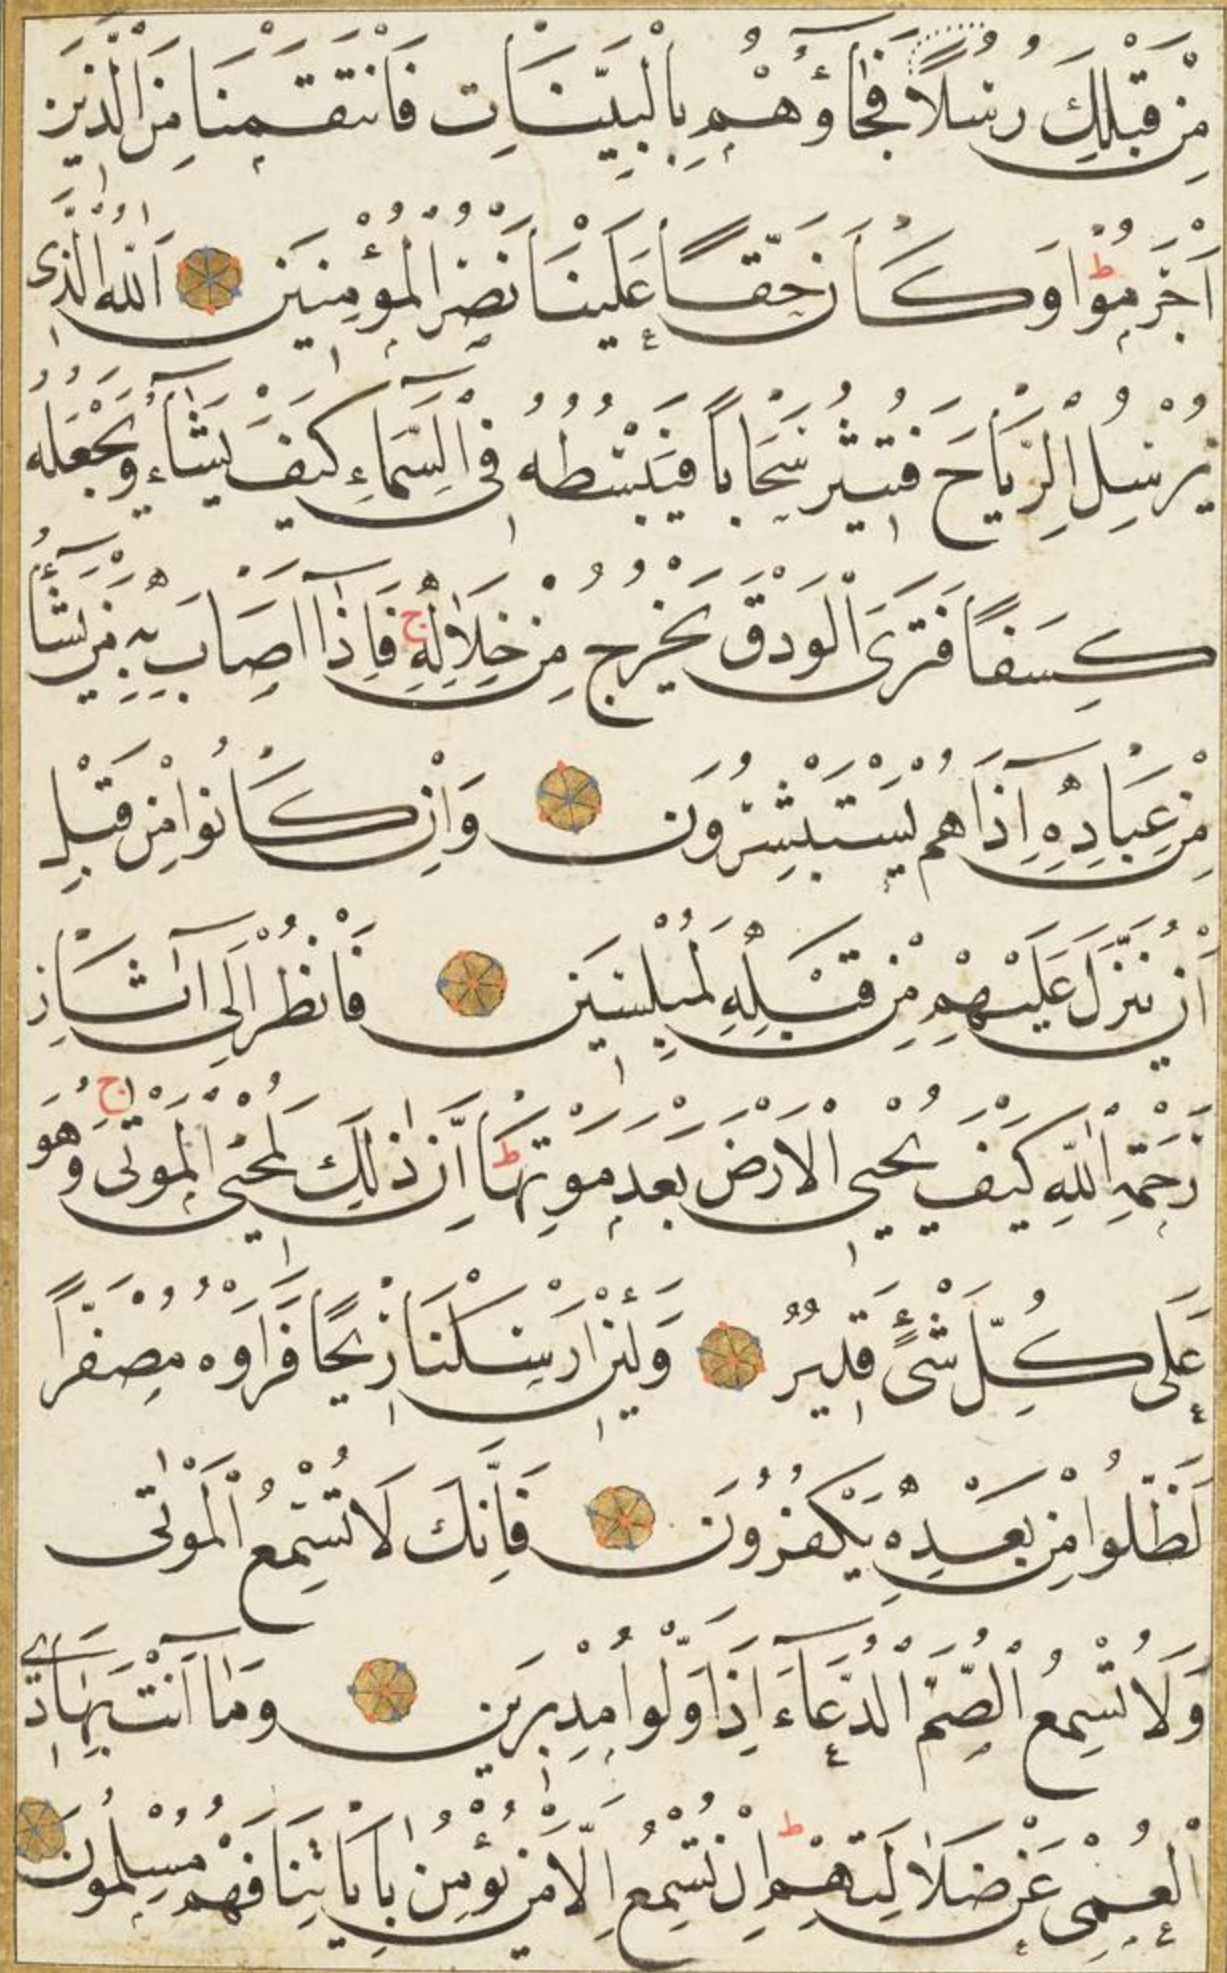 مِنْ قَبْلِكَ رُسُلًا فَجَاؤُهُمْ بِالْبَيِّنَاتِ فَانْتَقَمْنَا مِنَ الَّذِينَ
اَجْرَمُوْا ط وَكَانَ حَقًّا عَلَيْنَا نَصْرُ الْمُؤْمِنِينَ اَللّٰهُ الَّذِى
يُرْسِلُ الرِّيَاحَ فَتُثِيرُ سَحَابًا فَيَبْسُطُهُ فِى السَّمَاءِ كَيْفَ يَشَاءُ وَيَجْعَلُهُ
كِسَفًا فَتَرَى الْوَدْقَ يَخْرُجُ مِنْ خِلَالِهِ ج فَاِذَا اَصَابَ بِهِ مَنْ يَشَاءُ
مِنْ عِبَادِهِ اِذَا هُمْ يَسْتَبْشِرُونَ وَاِنْ كَانُوا مِنْ قَبْلِ
اَنْ يُنَزَّلَ عَلَيْهِمْ مِنْ قَبْلِهِ لَمُبْلِسِينَ فَانْظُرْ اِلَى آثَارِ
رَحْمَةِ اللّٰهِ كَيْفَ يُحْيِى الْاَرْضَ بَعْدَ مَوْتِهَا ط اِنَّ ذٰلِكَ لَمُحْيِى الْمَوْتٰى ج وَهُوَ
عَلٰى كُلِّ شَىْءٍ قَدِيرٌ وَلَئِنْ اَرْسَلْنَا رِيحًا فَرَاَوْهُ مُصْفَرًّا
لَظَلُّوا مِنْ بَعْدِهِ يَكْفُرُونَ فَاِنَّكَ لَا تُسْمِعُ الْمَوْتٰى
وَلَا تُسْمِعُ الصُّمَّ الدُّعَاءَ اِذَا وَلَّوْا مُدْبِرِينَ وَمَا اَنْتَ بِهَادِى
الْعُمْىِ عَنْ ضَلَالَتِهِمْ ط اِنْ تُسْمِعُ اِلَّا مَنْ يُؤْمِنُ بِاٰيَاتِنَا فَهُمْ مُسْلِمُونَ